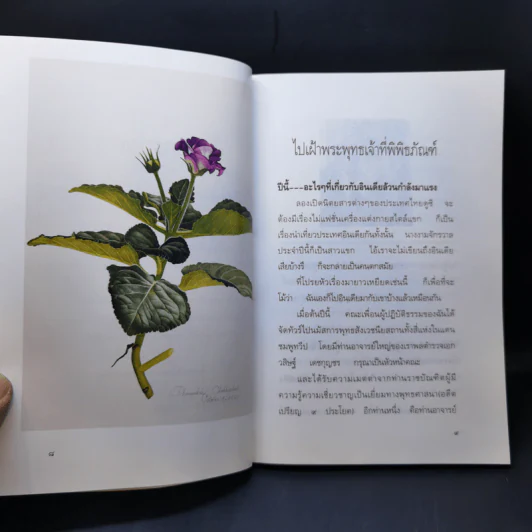 ๘
ไปเฝ้าพระพุทธเจ้าที่พิพิธภัณฑ์
ปีนี้---อะไรๆที่เกี่ยวกับอินเดียล้วนกำลังมาแรง
ลองเปิดนิตยสารต่างๆของประเทศไทยดูซี จะ
ต้องมีเรื่องไม่แฟชั่นเครื่องแต่งกายสไตล์แขก ก็เป็น
เรื่องนำเที่ยวประเทศอินเดียกันทั้งนั้น นางงามจักรวาล
ประจำปีนี้ก็เป็นสาวแขก ไอ้เราจะไม่เขียนถึงอินเดีย
เสียบ้างรึ ก็จะกลายเป็นคนตกสมัย
ที่โปรยหัวเรื่องมายาวเหยียดเช่นนี้ ก็เพื่อที่จะ
โม้ว่า ฉันเองก็ไปอินเดียมากับเขาบ้างแล้วเหมือนกัน
เมื่อต้นปีนี้ คณะเพื่อนผู้ปฏิบัติธรรมของฉันได้
จัดทัวร์ไปนมัสการพุทธสังเวชนียสถานทั้งสี่แห่งในแดน
ชมพูทวีป โดยมีท่านอาจารย์ใหญ่ของเราพลตำรวจเอก
วสิษฐ์ เดชกุญชร กรุณาเป็นหัวหน้าคณะ
และได้รับความเมตตาจากท่านราชบัณฑิตผู้มี
ความรู้ความเชี่ยวชาญเป็นเยี่ยมทางพุทธศาสนา(อดีต
เปรียญ ๙ ประโยค) อีกท่านหนึ่ง คือท่านอาจารย์
๙